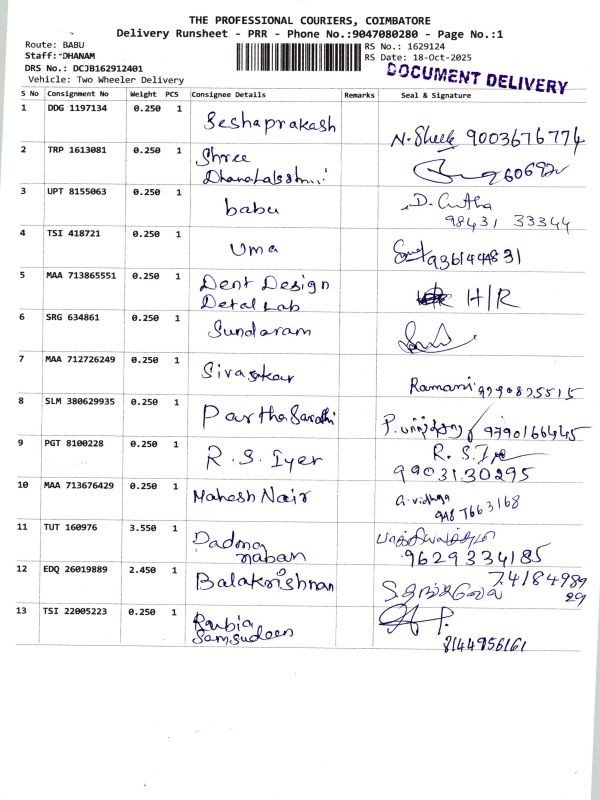 THE PROFESSIONAL COURIERS, COIMBATORE
Delivery Runsheet - PRR - Phone No.:9047080280 - Page No.:1
Route: BABU
Staff: DHANAM
DRS No.: DCJB162912401
Vehicle: Two Wheeler Delivery
RS No.: 1629124
RS Date: 18-Oct-2025
DOCUMENT DELIVERY
S No Consignment No Weight PCS Consignee Details Remarks Seal & Signature
1 DDG 1197134 0.250 1 Seshaprakash N. 9003676774
2 TRP 1613081 0.250 1 Shree
Dhanalakshmi
3 UPT 8155063 0.250 1 babu D.
98431 33344
4 TSI 418721 0.250 1 Uma 9361444831
5 MAA 713865551 0.250 1 Dent Design H/R
Detal Lab
6 SRG 634861 0.250 1 Sundaram
7 MAA 712726249 0.250 1 Ramani 9790825515
8 SLM 380629935 0.250 1 Parthasarathi P. 9790166445
9 PGT 8100228 0.250 1 R.S. Iyer R.S.
9903130295
10 MAA 713676429 0.250 1 Mahesh Nair G. vidhya
948 7663168
11 TUT 160976 3.550 1 Padma
naban 9629334185
12 EDQ 26019889 2.450 1 Balakrishnan 74184989
29
13 TSI 22005223 0.250 1 Rabia
Samsudeen 8144956161